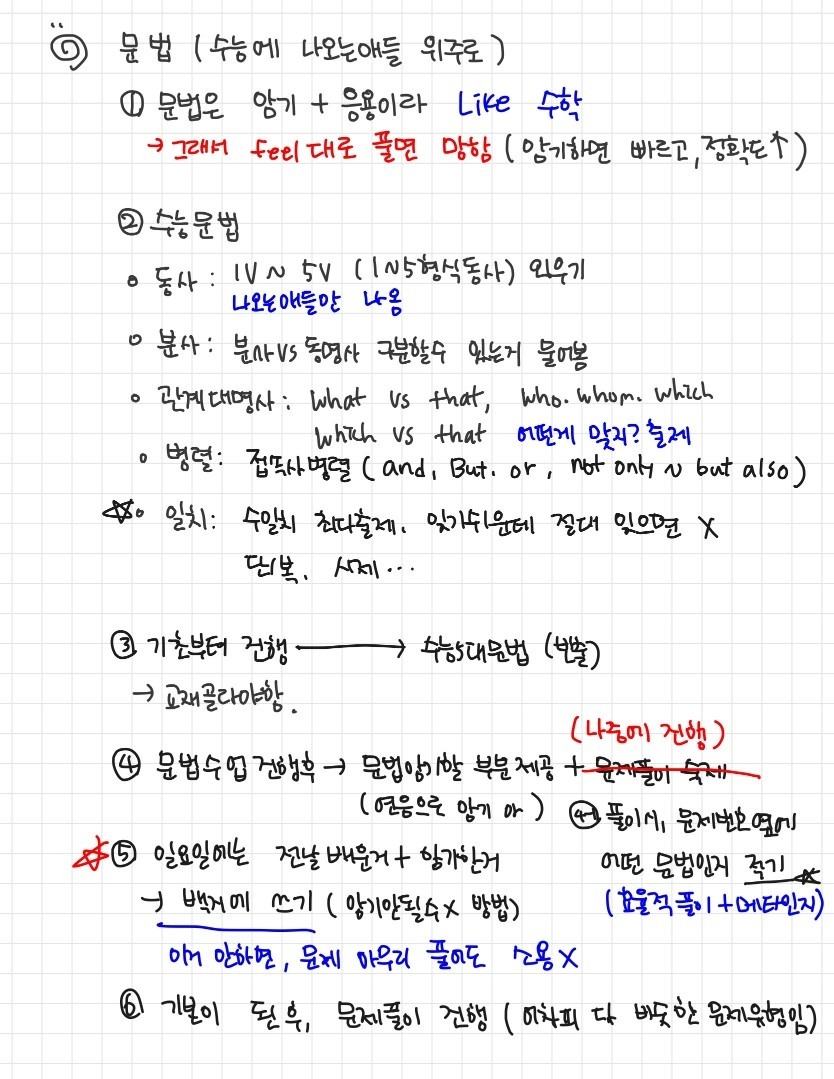 문법 (수능에 나오는애들 위주로)
① 문법은 암기 + 응용이라 Like 수학
→ 그래서 feel대로 풀면 망함 (암기하면 빠르고, 정확도↑)
② 수능문법
• 동사: 1V ~ 5V (1~5형식동사) 외우기
나오는애들만 나옴
• 분사: 분사vs동명사 구분할수 있는지 물어봄
• 관계대명사: what vs that, who. whom. which
which vs that 어떤게 맞지? 출제
• 병렬: 접속사병렬 (and, But. or, not only ~ but also)
☆• 일치: 수일치 최다출제. 잊기쉬운데 절대 잊으면 X
단/복, 시제…
③ 기초부터 진행 → 수능5대문법 (빈출)
→ 교재골라야함.
(나중에 진행)
④ 문법수업진행후 → 문법암기할 부분제공 + 문제풀이 숙제
④-1 풀이시, 문제번호옆에
어떤 문법인지 적기 ☆
(효율적풀이+메타인지)
☆⑤ 일요일에는 전날배운거+암기한거
→ 백지에 쓰기 (암기안될수X 방법)
이거 안하면, 문제 아무리 풀어도 소용X
⑥ 기본이 된후, 문제풀이 진행 (어차피 다 비슷한 문제유형임)